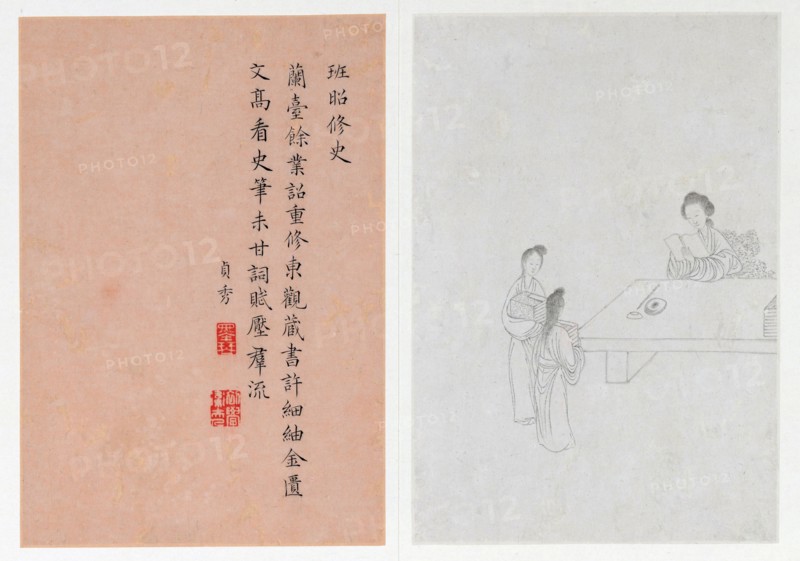 班昭修史
蘭臺餘業詔重修東觀藏書許細紬金匱
文高看史筆未甘詞賦壓羣流
貞秀
PHOTO12